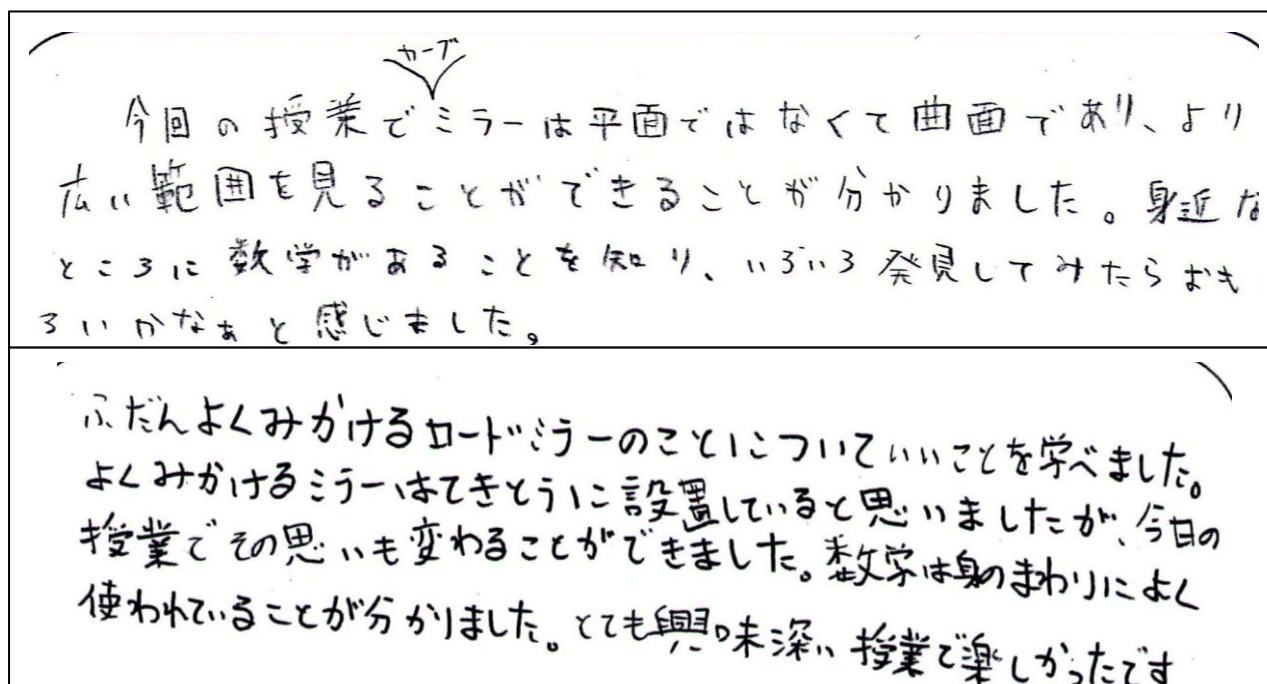 カーブ
今回の授業でミラーは平面ではなくて曲面であり、より
広い範囲を見ることができることが分かりました。身近な
ところに数学があることを知り、いろいろ発見してみたらおも
ろいかなぁと感じました。
ふだんよくみかけるロードミラーのことについていいことを学べました。
よくみかけるミラーはてきとうに設置していると思いましたが、今日の
授業でその思いも変わることができました。数学は身のまわりによく
使われていることが分かりました。とても興味深い授業で楽しかったです